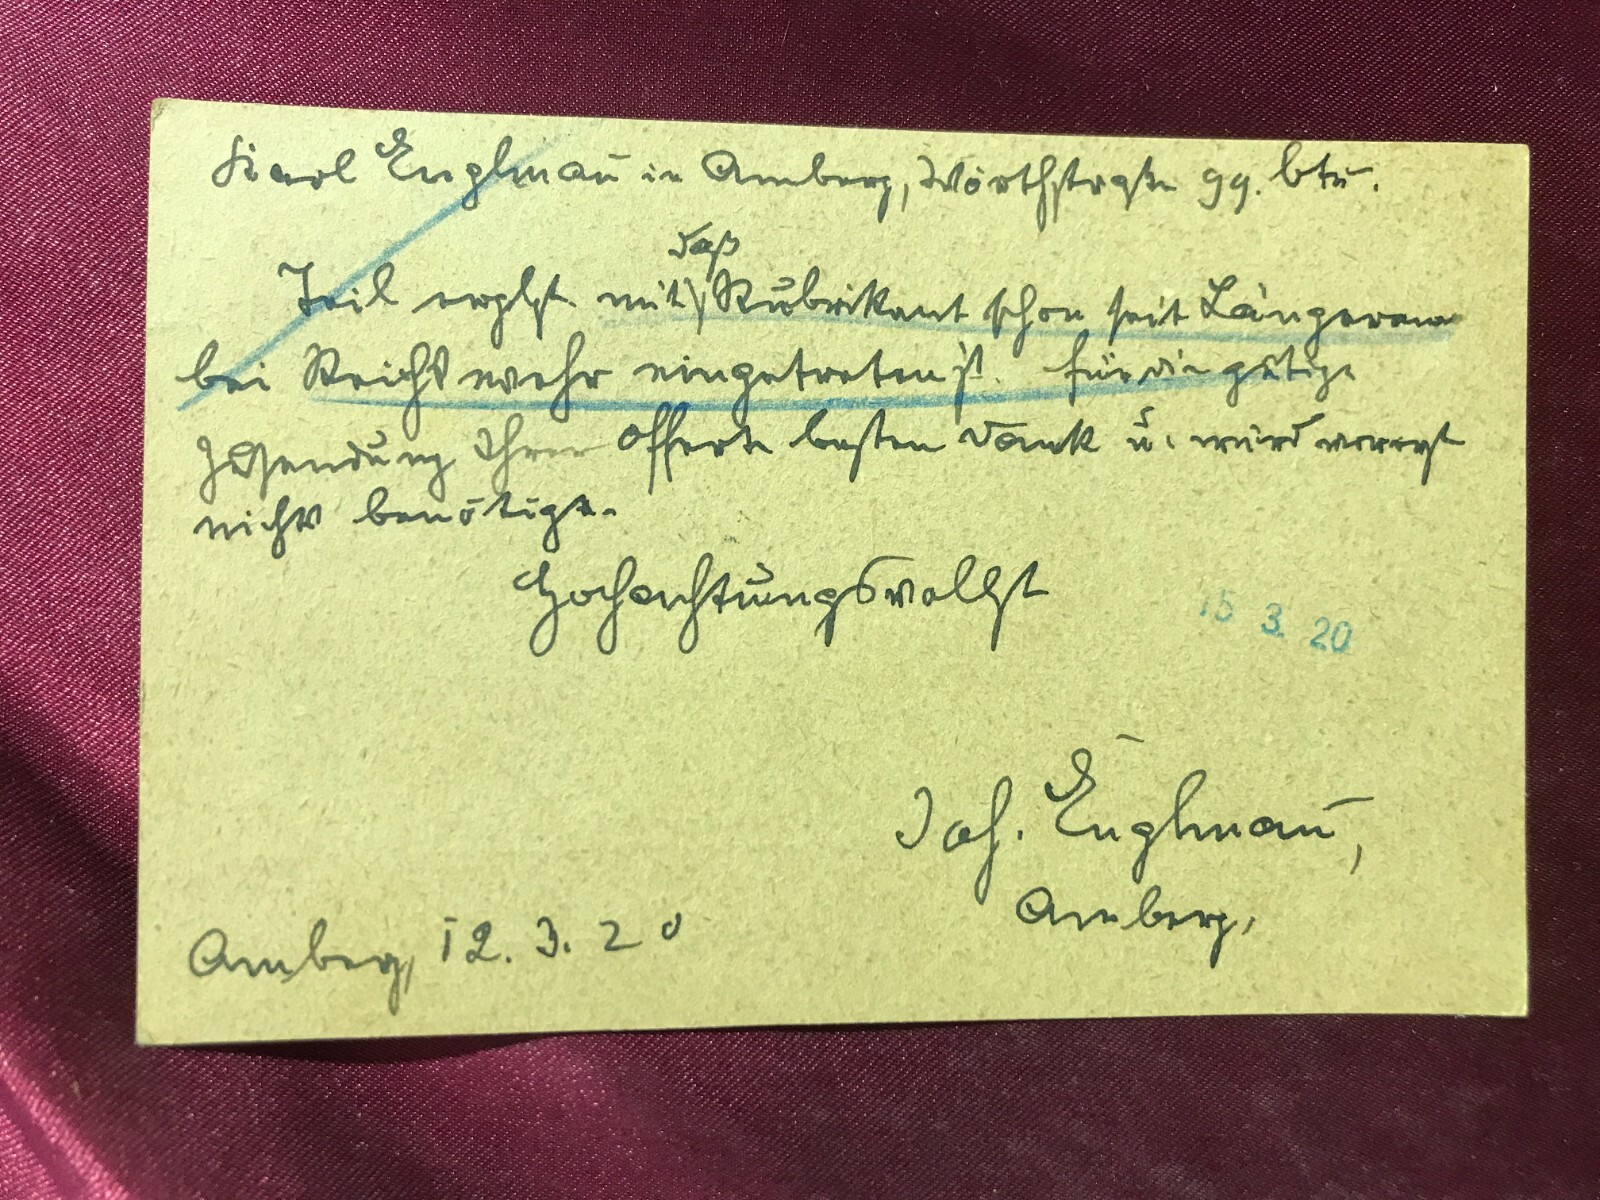 Karl Englmaū in Amberg, Wörthstraße 99. btr.
daß
Teil ergbst. mit, Rubrikant schon seit Längerem
bei Reichswehr eingetreten ist. Für die gütige
Zusendung Ihrer Offerte besten Dank u. wird vorerst
nichts benötigt.
Hochachtungsvollst
15 3. 20
Joh. Englmaū,
Amberg,
Amberg, 12. 3. 20